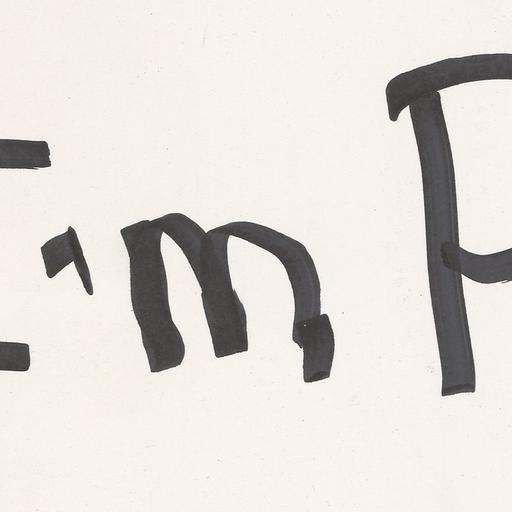 I'm P